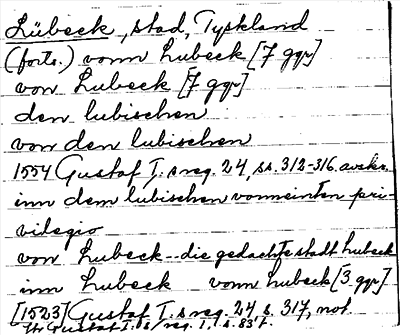 Lübeck, stad, Tyskland
(forts.) vonn Lubeck [7 ggr]
von Lubeck [7 ggr]
den lubischen
von den lubischen
1554 Gustaf I:s reg. 24, ss. 312-316. avskr.
inn dem lubischen vormeinten pri-
vilegio
von Lubeck - die gedachte stadt Lubeck
inn Lubeck vonn Lubeck [3 ggr]
[1523] Gustaf I:s reg. 24 s. 317, not.
Gustaf I:s reg. 1, s. 83 f.